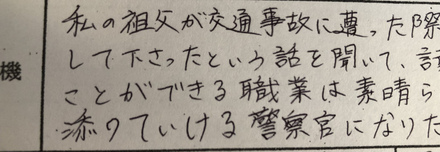 私の祖父が交通事故に遭った際
して下さったという話を聞いて、
機
ことができる職業は素晴ら
添っていける警察官になりた